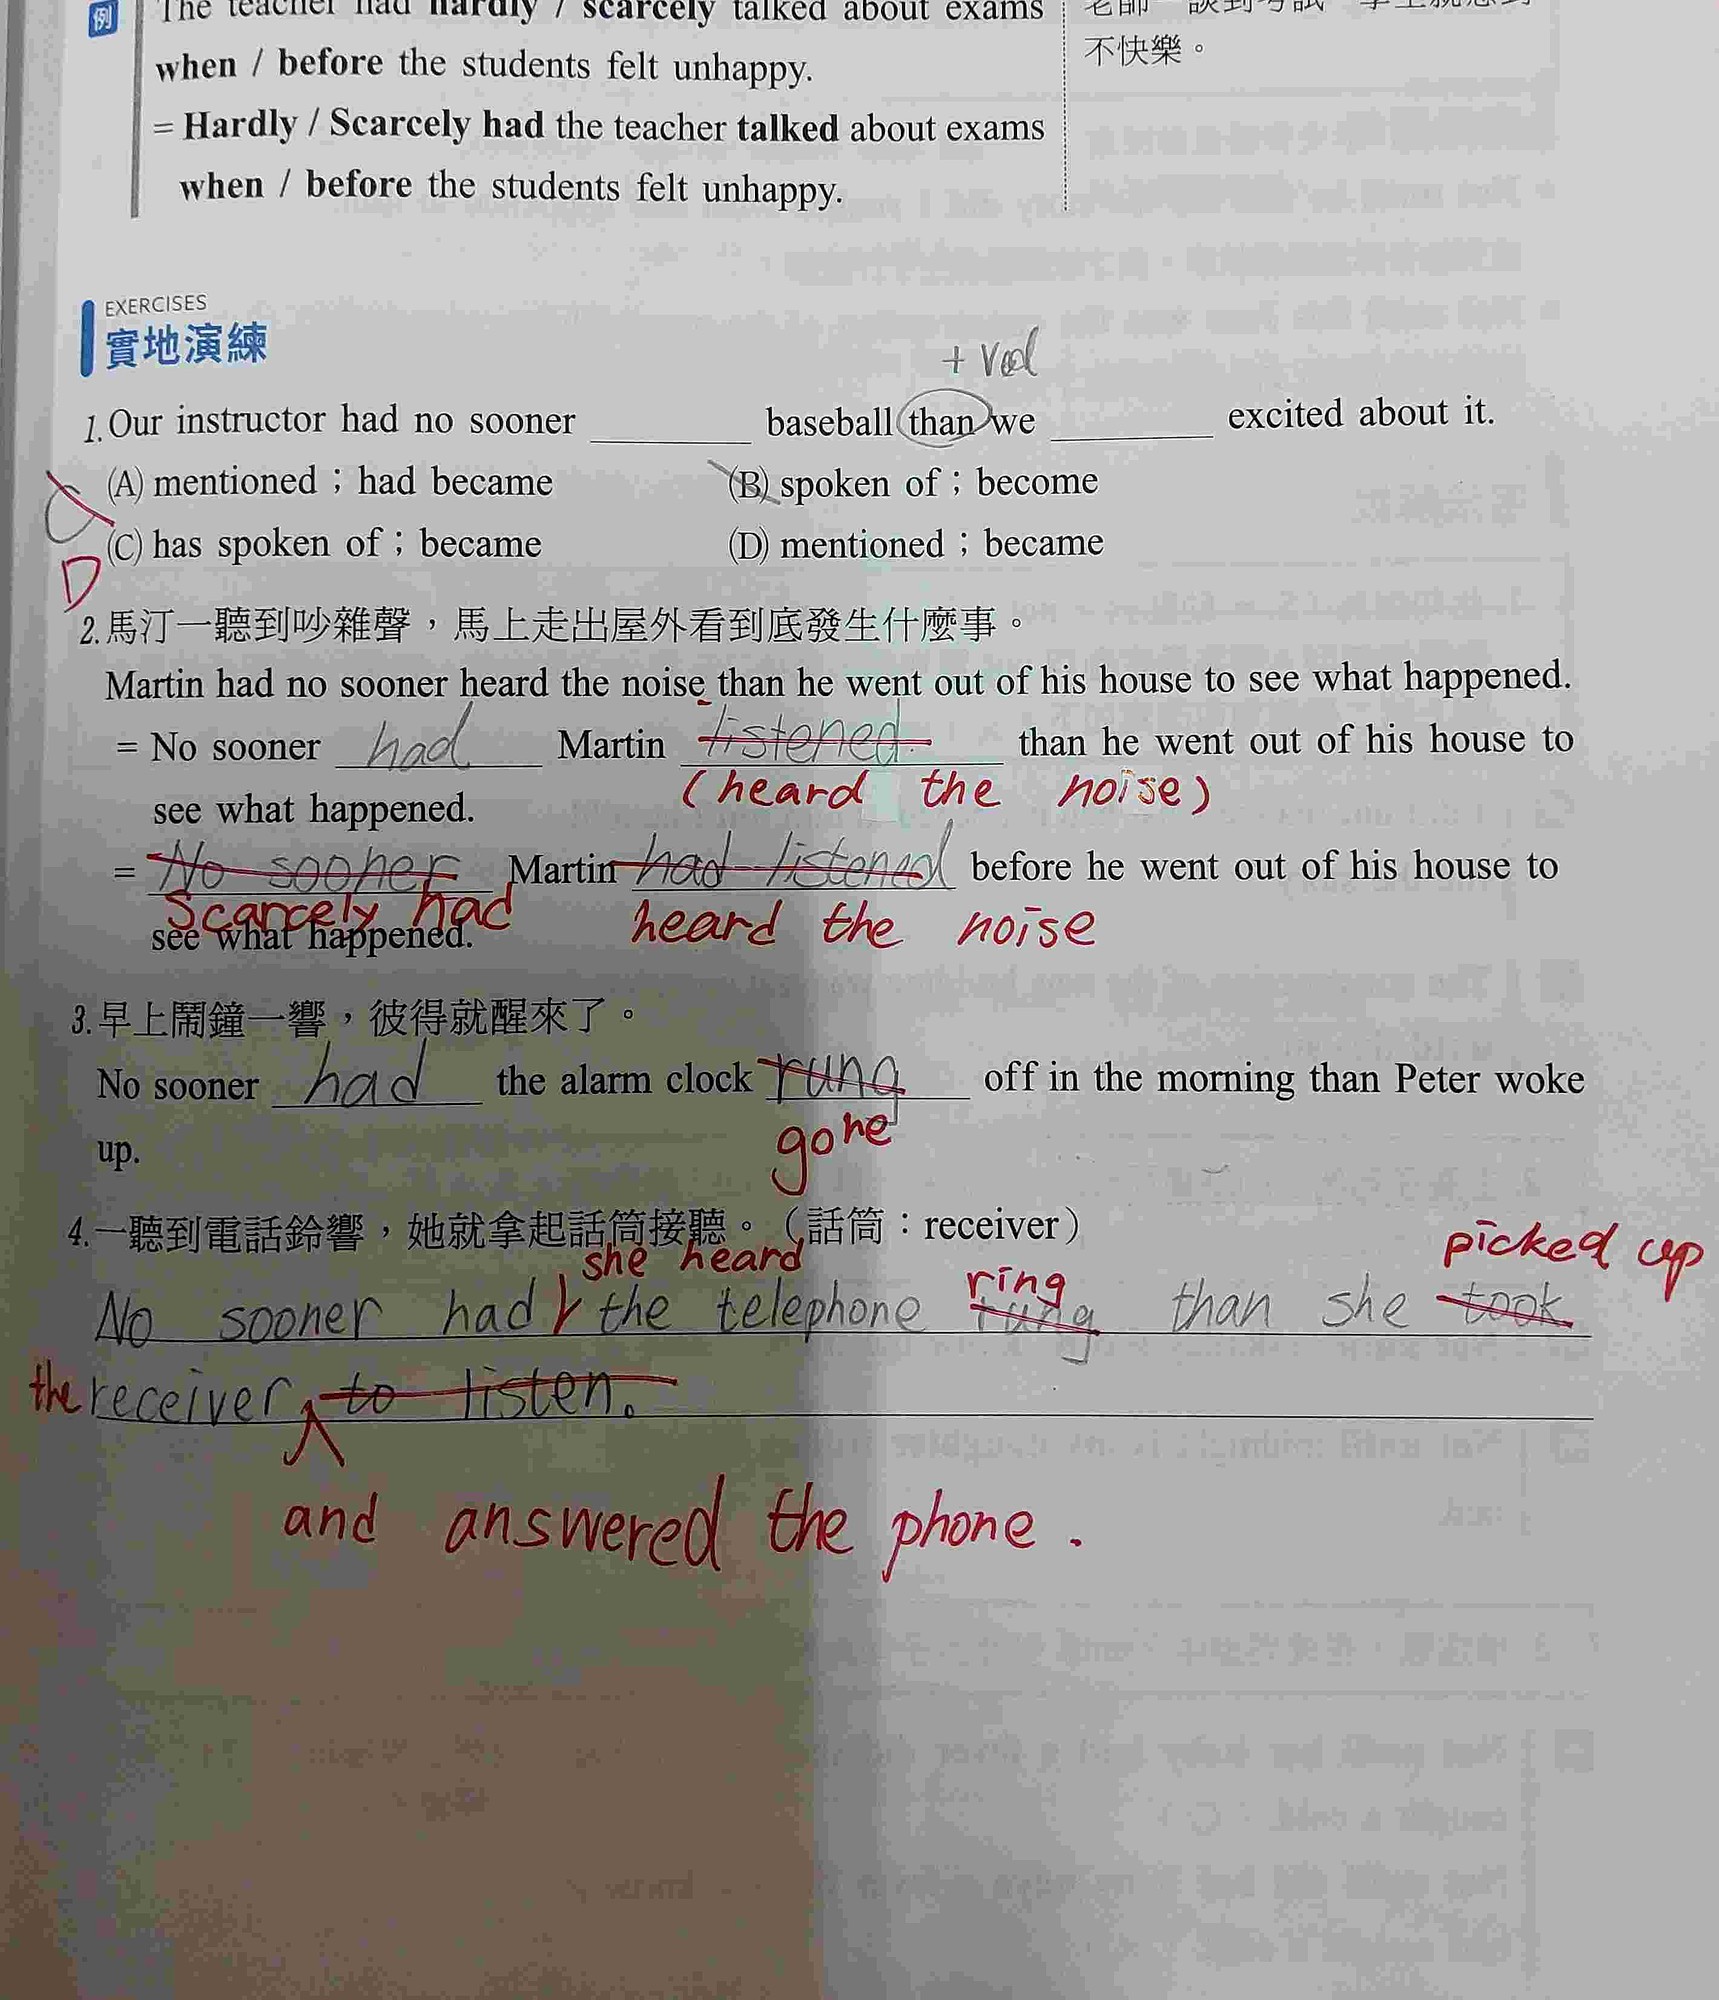 例 The teacher had hardly / scarcely talked about exams
when / before the students felt unhappy.
= Hardly / Scarcely had the teacher talked about exams
when / before the students felt unhappy.
不快樂。
EXERCISES
實地演練
+ Ved
1. Our instructor had no sooner ________ baseball than we ________ excited about it.
(A) mentioned；had became (B) spoken of；become
C
(C) has spoken of；became (D) mentioned；became
D
2. 馬汀一聽到吵雜聲，馬上走出屋外看到底發生什麼事。
Martin had no sooner heard the noise than he went out of his house to see what happened.
= No sooner had Martin listened than he went out of his house to
(heard the noise)
see what happened.
= No sooner Martin had listened before he went out of his house to
Scarcely had heard the noise
see what happened.
3. 早上鬧鐘一響，彼得就醒來了。
No sooner had the alarm clock rung off in the morning than Peter woke
gone
up.
4. 一聽到電話鈴響，她就拿起話筒接聽。（話筒：receiver）
she heard ring picked up
No sooner had the telephone rung than she took
the receiver to listen.
and answered the phone.